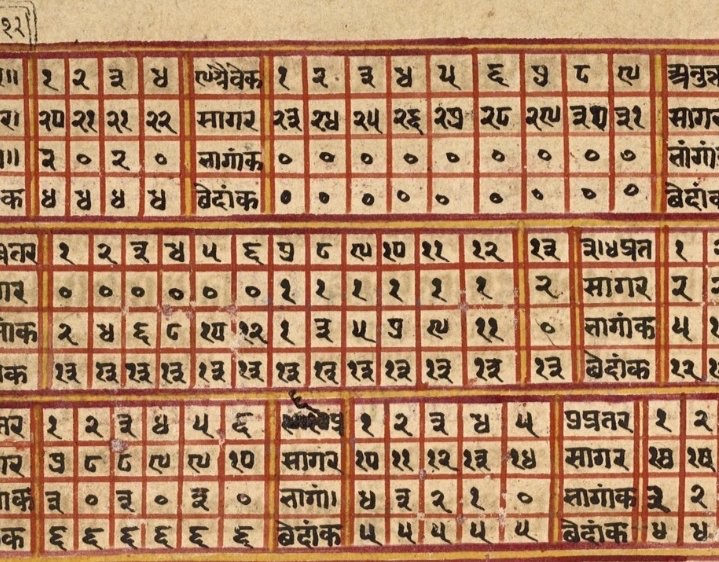 १२
॥ १ २ ३ ४ ग्रैवेक १ २ ३ ४ ५ ६ ७ ८ ९
२० २१ २१ २२ सागर २३ २४ २५ २६ २७ २८ २९ ३० ३१ सागर
॥ २ ० २ ० लागांक ० ० ० ० ० ० ० ० ० लांगांक
क ४ ४ ४ ४ बेदांक ० ० ० ० ० ० ० ० ० बेदांक
तर १ २ ३ ४ ५ ६ ७ ८ ९ १० ११ १२ १३ ३।४प्रत १
गर ० ० ० ० ० ० १ १ १ १ १ १ २ सागर २ २
गांक २ ४ ६ ८ १० १२ १ ३ ५ ७ ९ ११ ० लागांक ५
क १३ १३ १३ १३ १३ १३ १३ १३ १३ १३ १३ १३ १३ बेदांक १२
तर १ २ ३ ४ ५ ६ १ २ ३ ४ ५ प्रतर १ २
गर ७ ८ ८ ९ ९ १० सागर १० ११ १२ १३ १४ सागर १४ १५
क ३ ० ३ ० ३ ० लागां। ४ ३ २ १ ० लागांक ३ २
क ६ ६ ६ ६ ६ ६ बेदांक ५ ५ ५ ५ ५ बेदांक ४ ४